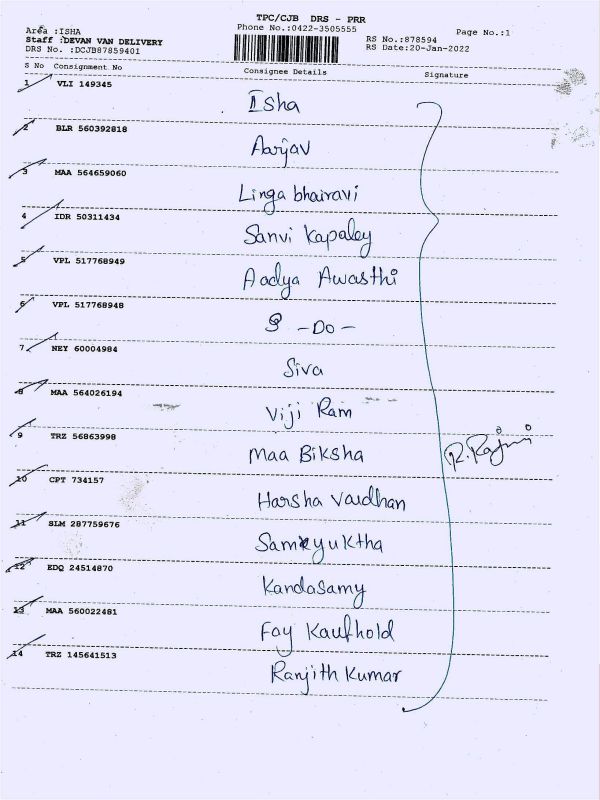 TPC/CJB DRS - PRR
Phone No.:0422-3505555
Page No.:1
Area :ISHA
RS No.:878594
Staff :DEVAN VAN DELIVERY
RS Date:20-Jan-2022
DRS No. :DCJB87859401
S No Consignment No Consignee Details Signature
1 VLI 149345 Isha
2 BLR 560392818 Aarjav
3 MAA 564659060 Linga bhairavi
4 IDR 50311434 Sanvi Kapaley
5 VPL 517768949 Aadya Awasthi
6 VPL 517768948 -Do-
7 NEY 60004984 Siva
8 MAA 564026194 Viji Ram
9 TRZ 56863998 Maa Biksha
R. Rajini
10 CPT 734157 Harsha Vardhan
11 SLM 287759676 Samyuktha
12 EDQ 24514870 Kandasamy
13 MAA 560022481 Fay Kaufhold
14 TRZ 145641513 Ranjith Kumar